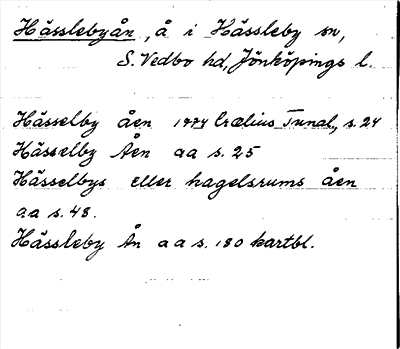 Hässlebyån, å i Hässleby sn,
S. Vedbo hd, Jönköpings l.
Hässelby åen 1774 Crælius Tunal, s. 24
Hässelby Åen aa s. 25
Hässelbys eller hagelsrums åen
aa s. 48.
Hässleby Ån aa s. 180 kartbl.